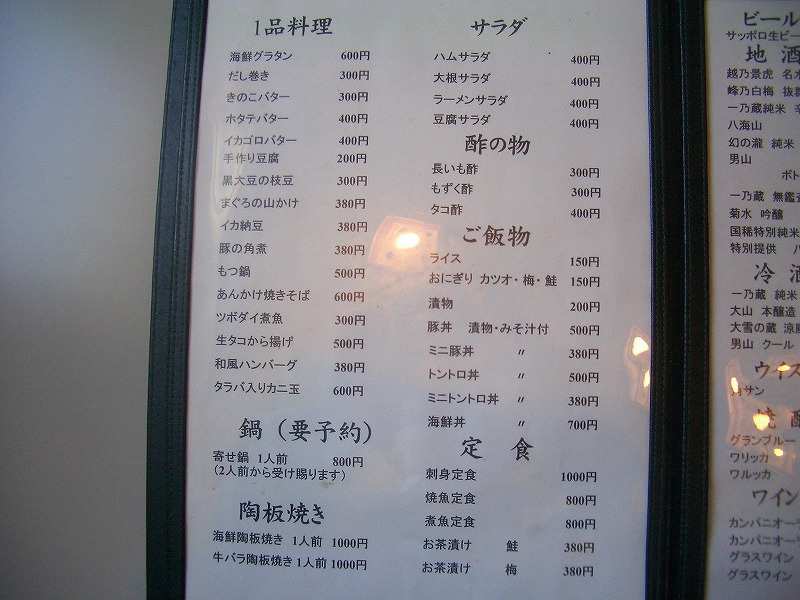 1品料理
海鮮グラタン 600円
だし巻き 300円
きのこバター 300円
ホタテバター 400円
イカゴロバター 400円
手作り豆腐 200円
黒大豆の枝豆 300円
まぐろの山かけ 380円
イカ納豆 380円
豚の角煮 380円
もつ鍋 500円
あんかけ焼きそば 600円
ツボダイ煮魚 300円
生タコから揚げ 500円
和風ハンバーグ 380円
タラバ入りカニ玉 600円
鍋(要予約)
寄せ鍋 1人前 800円
(2人前から受け賜ります)
陶板焼き
海鮮陶板焼き 1人前 1000円
牛バラ陶板焼き 1人前 1000円
サラダ
ハムサラダ 400円
大根サラダ 400円
ラーメンサラダ 400円
豆腐サラダ 400円
酢の物
長いも酢 300円
もずく酢 300円
タコ酢 400円
ご飯物
ライス 150円
おにぎり カツオ・梅・鮭 150円
漬物 200円
豚丼 漬物・みそ汁付 500円
ミニ豚丼 〃 380円
トントロ丼 〃 500円
ミニトントロ丼 〃 380円
海鮮丼 〃 700円
定食
刺身定食 1000円
焼魚定食 800円
煮魚定食 800円
お茶漬け 鮭 380円
お茶漬け 梅 380円
ビール
サッポロ生ビー
地酒
越乃景虎 名水
峰乃白梅 抜群
一乃蔵純米 辛
八海山
幻の瀧 純米
男山
ボト
一乃蔵 無鑑査
菊水 吟醸
国稀特別純米
特別提供
冷酒
一乃蔵 純米
大山 本醸造
大雪の蔵 涼風
男山 クール
ウイス
角サン
焼酎
グランブルー
ワリッカ
ワルッカ
ワイン
カンパニオー
カンパニオー
グラスワイン
グラスワイン